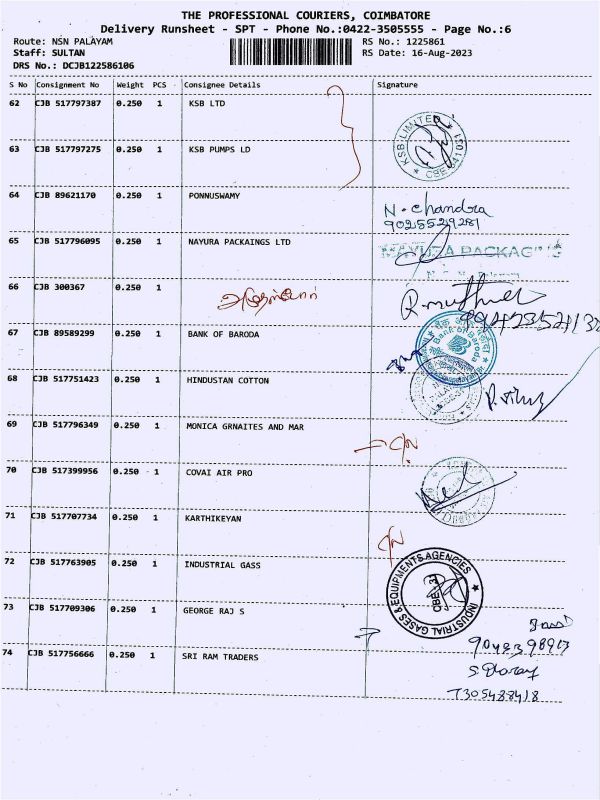 THE PROFESSIONAL COURIERS, COIMBATORE
Delivery Runsheet - SPT - Phone No.:0422-3505555 - Page No.:6
Route: NSN PALAYAM RS No.: 1225861
Staff: SULTAN RS Date: 16-Aug-2023
DRS No.: DCJB122586106
S No Consignment No Weight PCS Consignee Details Signature
62 CJB 517797387 0.250 1 KSB LTD
KSB LIMITED
63 CJB 517797275 0.250 1 KSB PUMPS LD
64 CJB 89621170 0.250 1 PONNUSWAMY N. Chandra
9025529281
65 CJB 517796095 0.250 1 NAYURA PACKAINGS LTD MAYURA PACKAGING
66 CJB 300367 0.250 1
67 CJB 89589299 0.250 1 BANK OF BARODA Bank of Baroda
68 CJB 517751423 0.250 1 HINDUSTAN COTTON
69 CJB 517796349 0.250 1 MONICA GRNAITES AND MAR
70 CJB 517399956 0.250 1 COVAI AIR PRO
71 CJB 517707734 0.250 1 KARTHIKEYAN
72 CJB 517763905 0.250 1 INDUSTRIAL GASS
INDUSTRIAL GASES & EQUIPMENTS AGENCIES
73 CJB 517709306 0.250 1 GEORGE RAJ S
74 CJB 517756666 0.250 1 SRI RAM TRADERS
7305488418